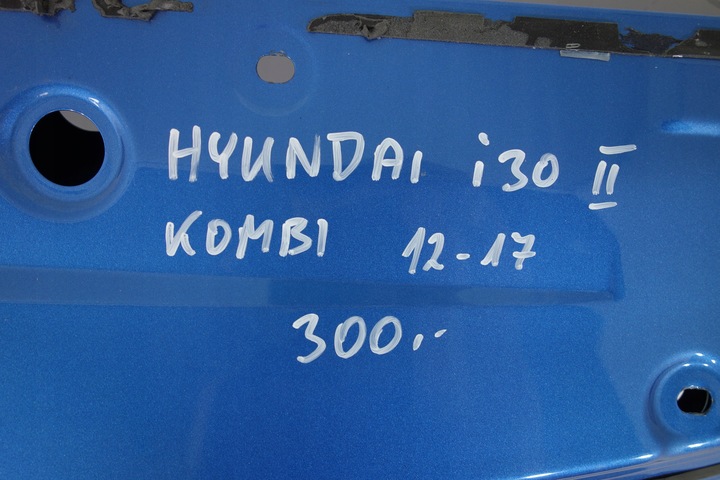 HYUNDAI i30 II
KOMBI 12-17
300.-